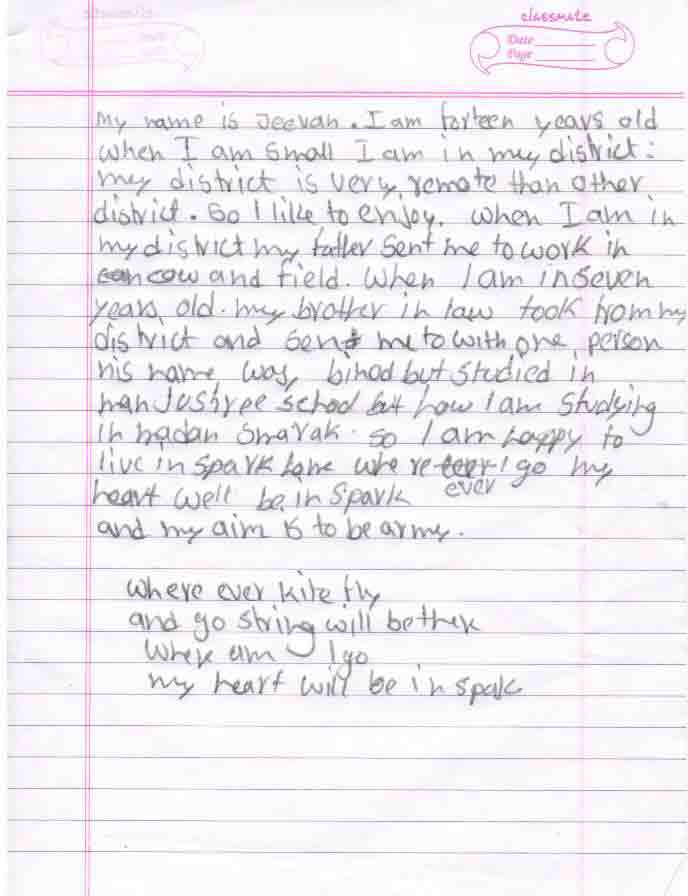 classmate
Date
Page
My name is Jeevan. I am forteen years old
when I am small I am in my district.
my district is very remote than other
district. So I like to enjoy. when I am in
my district my father sent me to work in
cow and field. when I am in seven
years old. my brother in law took from my
district and sent me to with one person
his name was, binod but studied in
manjushree school but now I am studying
in madan smarak. so I am happy to
live in spark home where ever I go my
heart well be in spark
and my aim is to be army.
where ever kite fly
and go string will be there
where am I go
my heart will be in spak